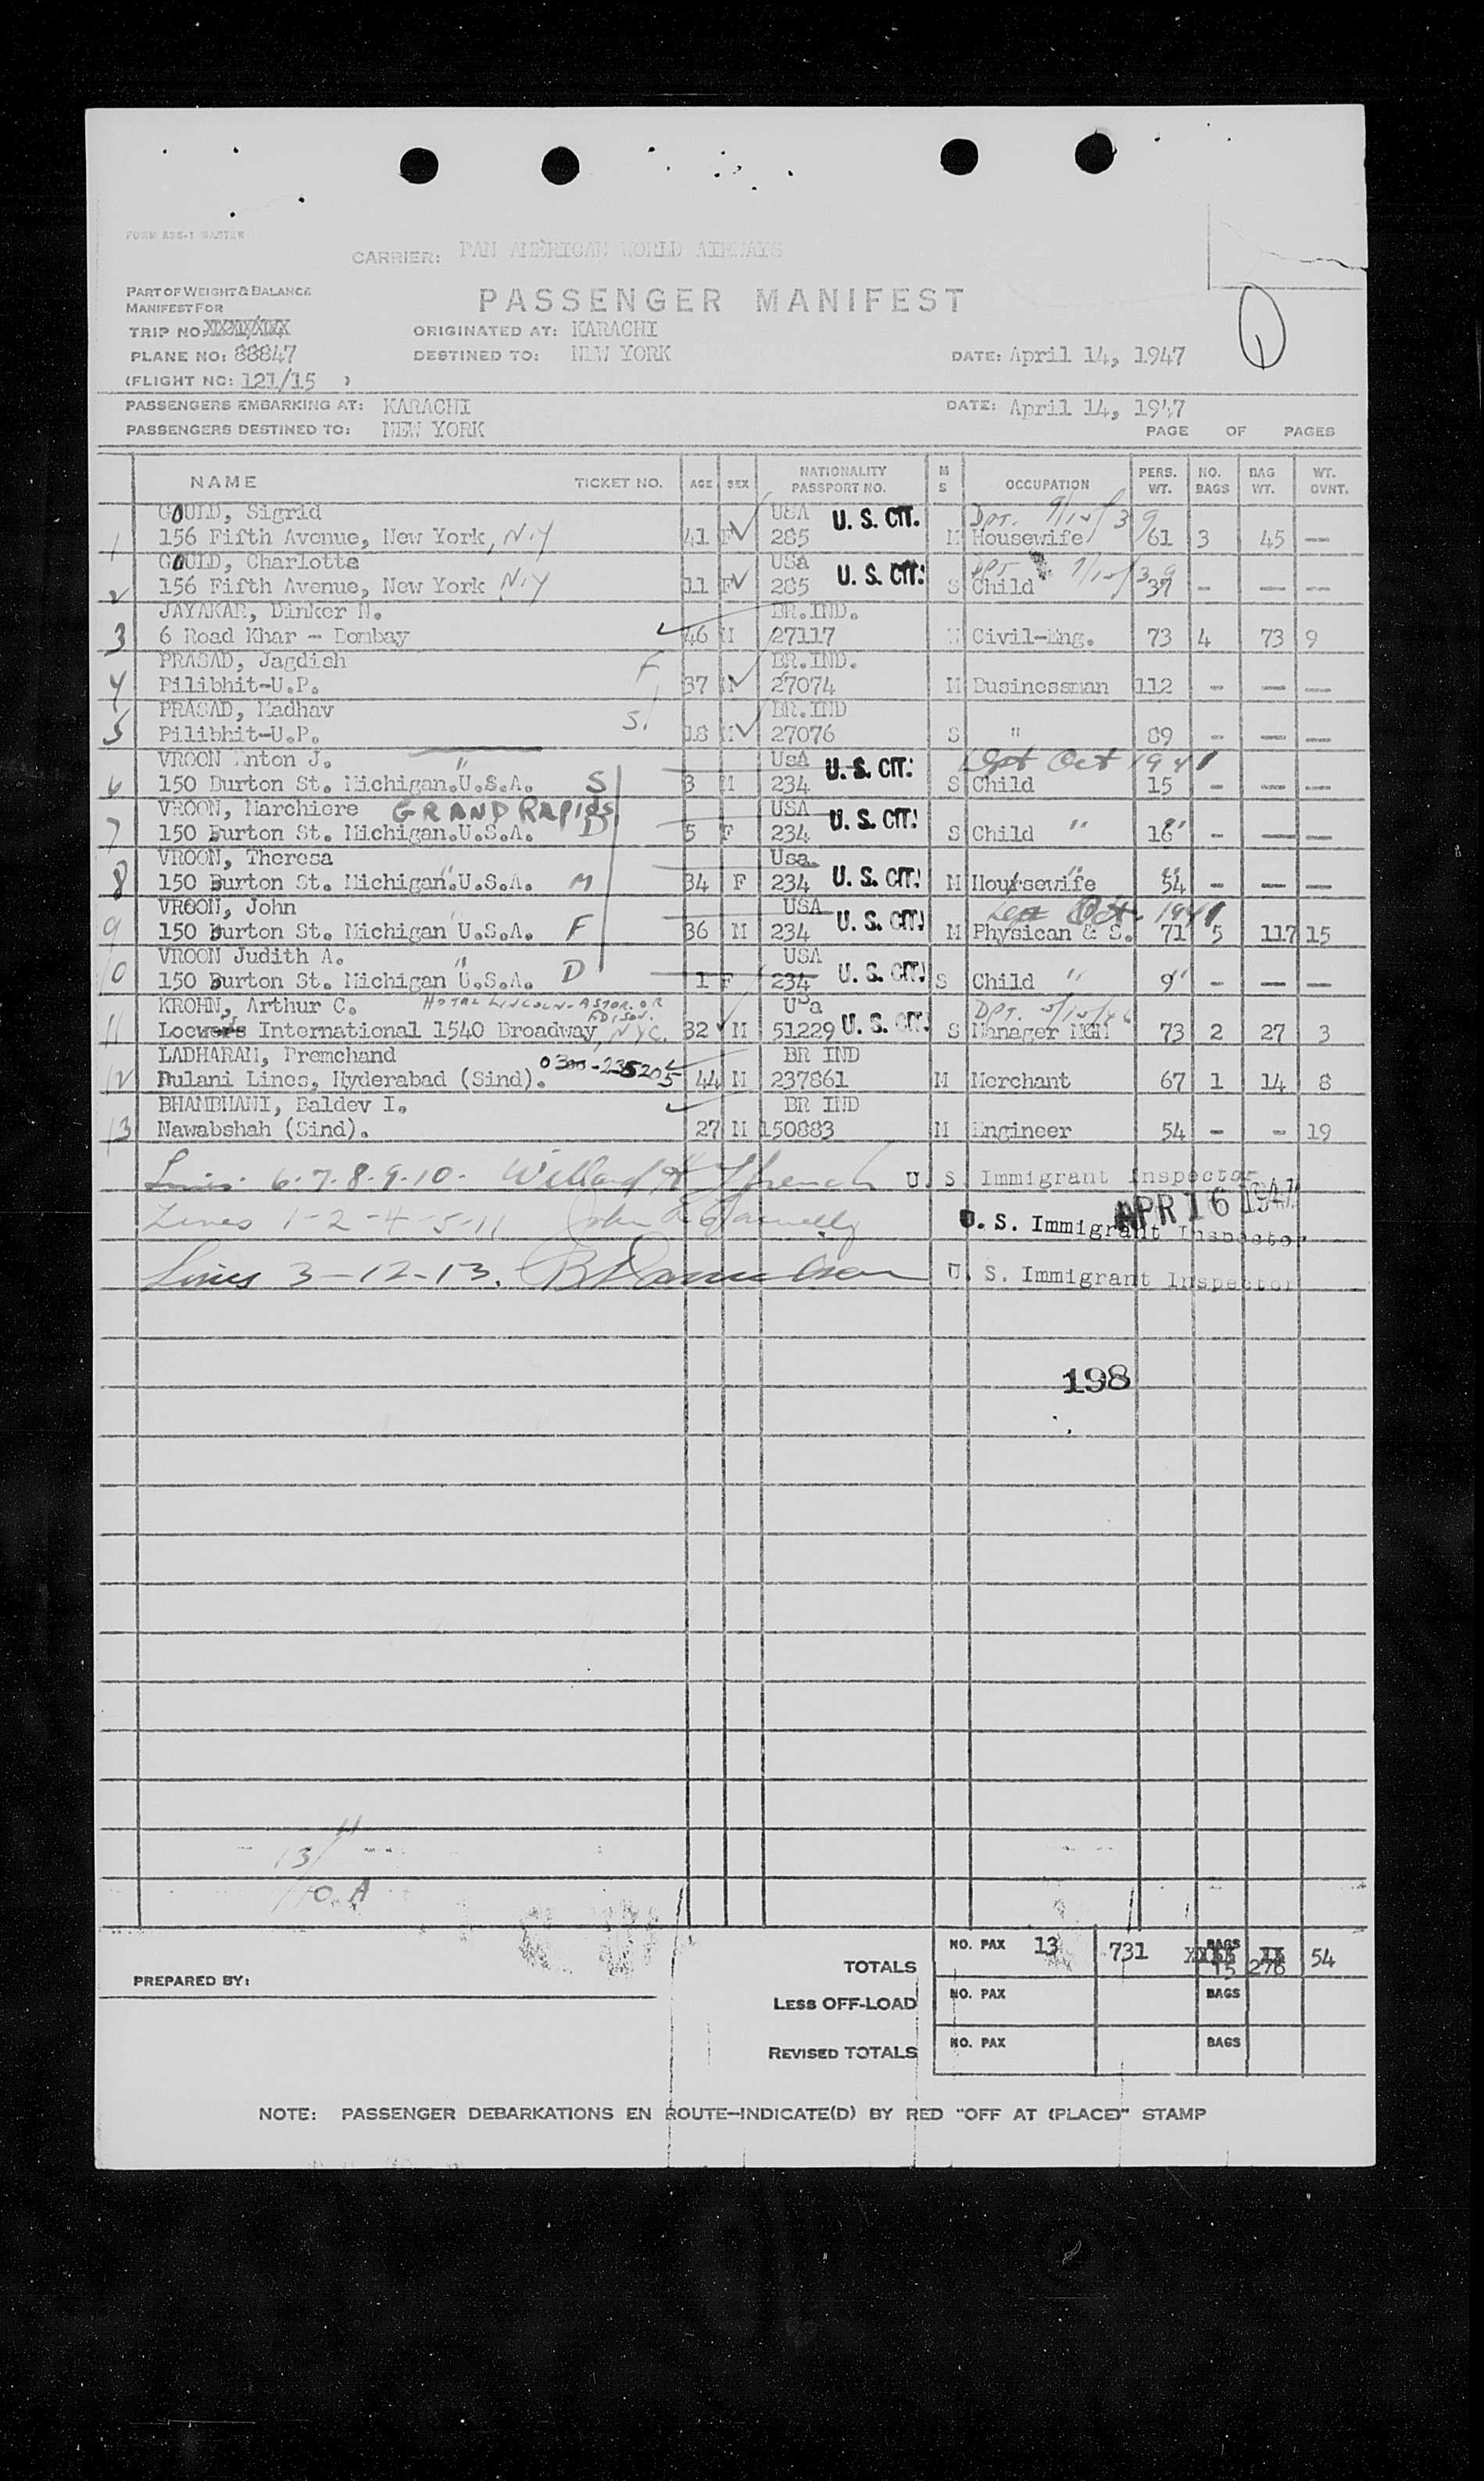 FORM ASS-1 MASTER
CARRIER: PAN AMERICAN WORLD AIRWAYS
PART OF WEIGHT & BALANCE
MANIFEST FOR
PASSENGER MANIFEST
TRIP NO:
ORIGINATED AT: KARACHI
PLANE NO: 88847
DESTINED TO: NEW YORK
DATE: April 14, 1947
(FLIGHT NO: 121/15 )
PASSENGERS EMBARKING AT: KARACHI
DATE: April 14, 1947
PASSENGERS DESTINED TO: NEW YORK
PAGE OF PAGES
NAME TICKET NO. AGE SEX NATIONALITY PASSPORT NO. M S OCCUPATION PERS. WT. NO. BAGS BAG WT. WT. OVNT.
GOULD, Sigrid USA U. S. CIT. Dpt.
1 156 Fifth Avenue, New York, N.Y 41 F 285 M Housewife 61 3 45 —
GOULD, Charlotte USa U. S. CIT. DPT
2 156 Fifth Avenue, New York N.Y 11 F 285 S Child 37 - — —
JAYAKAR, Dinker N. BR.IND.
3 6 Road Khar - Bombay 46 M 27117 M Civil-Eng. 73 4 73 9
PRASAD, Jagdish F BR.IND.
4 Pilibhit-U.P. 37 M 27074 M Businessman 112 - — —
PRASAD, Madhav S. BR.IND
5 Pilibhit-U.P. 18 M 27076 S " 89 - — —
VROON Anton J. " UsA U. S. CIT. Dpt Oct 1941
6 150 Burton St. Michigan.U.S.A. S 3 M 234 S Child 15 - — —
VROON, Marchiere GRAND RAPIDS USA U. S. CIT.
7 150 Burton St. Michigan.U.S.A. D 5 F 234 S Child " 16 - — —
VROON, Theresa Usa U. S. CIT.
8 150 Burton St. Michigan.U.S.A. M 34 F 234 M Hoursewife 54 - — —
VROON, John USA U. S. CIT. Oct. 1941
9 150 Burton St. Michigan U.S.A. F 36 M 234 M Physican & S. 71 5 117 15
VROON Judith A. " USA U. S. CIT.
10 150 Burton St. Michigan U.S.A. D 1 F 234 S Child " 9
KROHN, Arthur C. HOTAL LINCOLN-ASTOR OR EDISON. Usa DPT. 5/15/46
11 Loews International 1540 Broadway, NYC. 32 M 51229 U. S. CIT. S Manager MGM 73 2 27 3
LADHARAM, Premchand BR IND
12 Dulani Lines, Hyderabad (Sind). 0300-235205 44 M 237861 M Merchant 67 1 14 8
BHAMBHANI, Baldev I. BR IND
13 Nawabshah (Sind). 27 M 150883 M Engineer 54 - - 19
Lines 6.7.8.9.10. Willard H U. S. Immigrant Inspector
APR 16 1947
Lines 1-2-4-5-11 John U. S. Immigrant Inspector
Lines 3-12-13. U. S. Immigrant Inspector
198
13/11
O. A
PREPARED BY:
TOTALS NO. PAX 13 731 BAGS 15 276 54
LESS OFF-LOAD NO. PAX BAGS
REVISED TOTALS NO. PAX BAGS
NOTE: PASSENGER DEBARKATIONS EN ROUTE—INDICATE(D) BY RED "OFF AT (PLACE)" STAMP